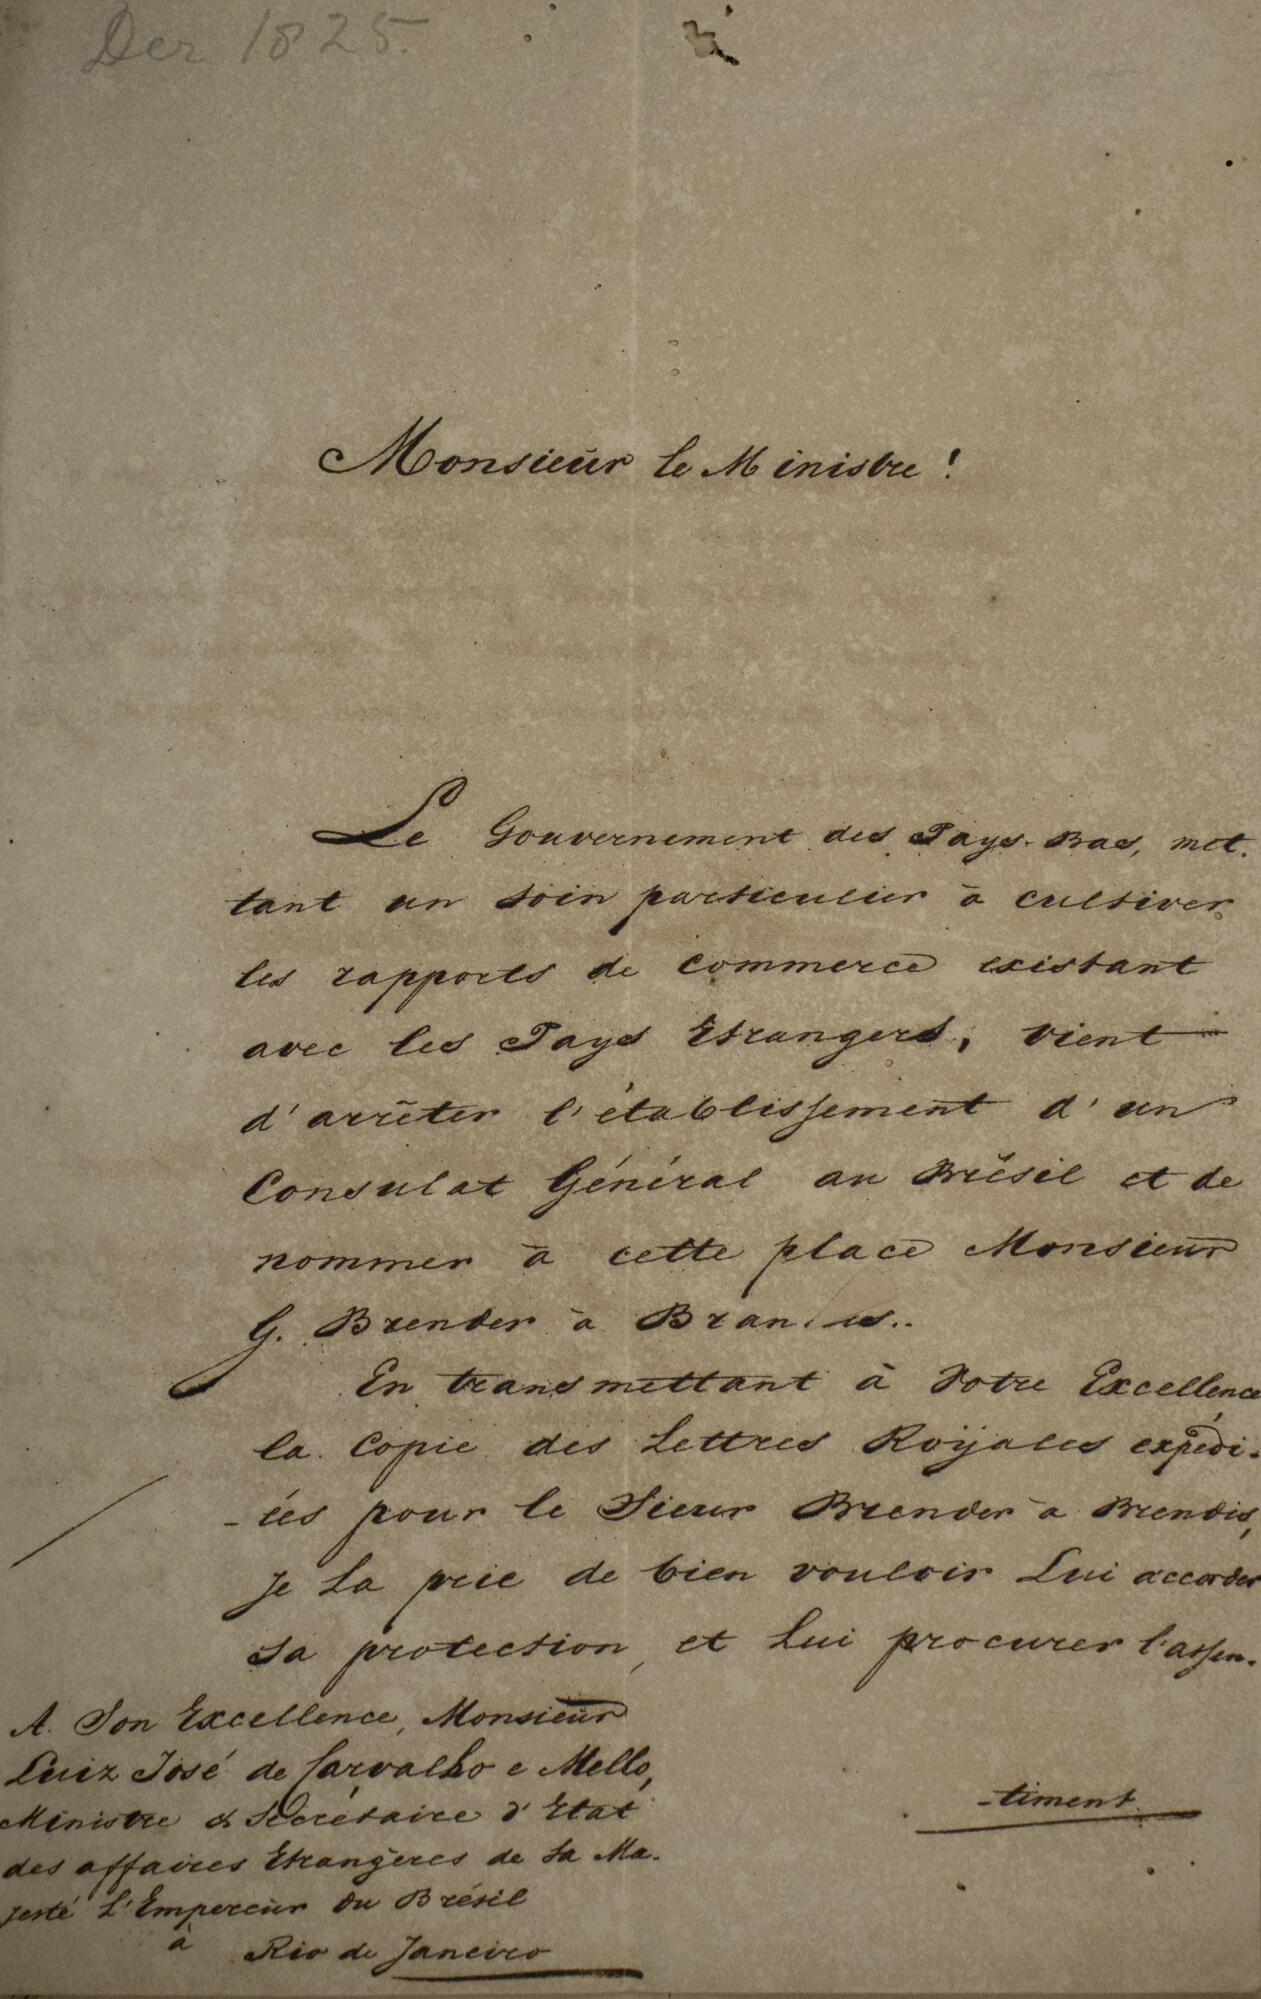 Der 1825.
Monsieur le Ministre!
Le Gouvernement des Pays-Bas, met-
tant un soin particulier à cultiver
les rapports de commerce existant
avec les Pays Etrangers, vient
d'arrêter l'établissement d'un
Consulat Général au Brésil et de
nommer à cette place Monsieur
G. Brender à
En transmettant à Votre Excellence
la Copie des Lettres Royales expédi-
-ées pour le Sieur Brender à Brendis,
je La prie de bien vouloir Lui accorder
Sa protection, et Lui procurer l'assen-
-timent
A Son Excellence, Monsieur
Luiz José de Carvalho e Mello,
Ministre & Secrétaire d'Etat
des affaires Etrangères de Sa Ma-
jesté L'Empereur du Brésil
à Rio de Janeiro